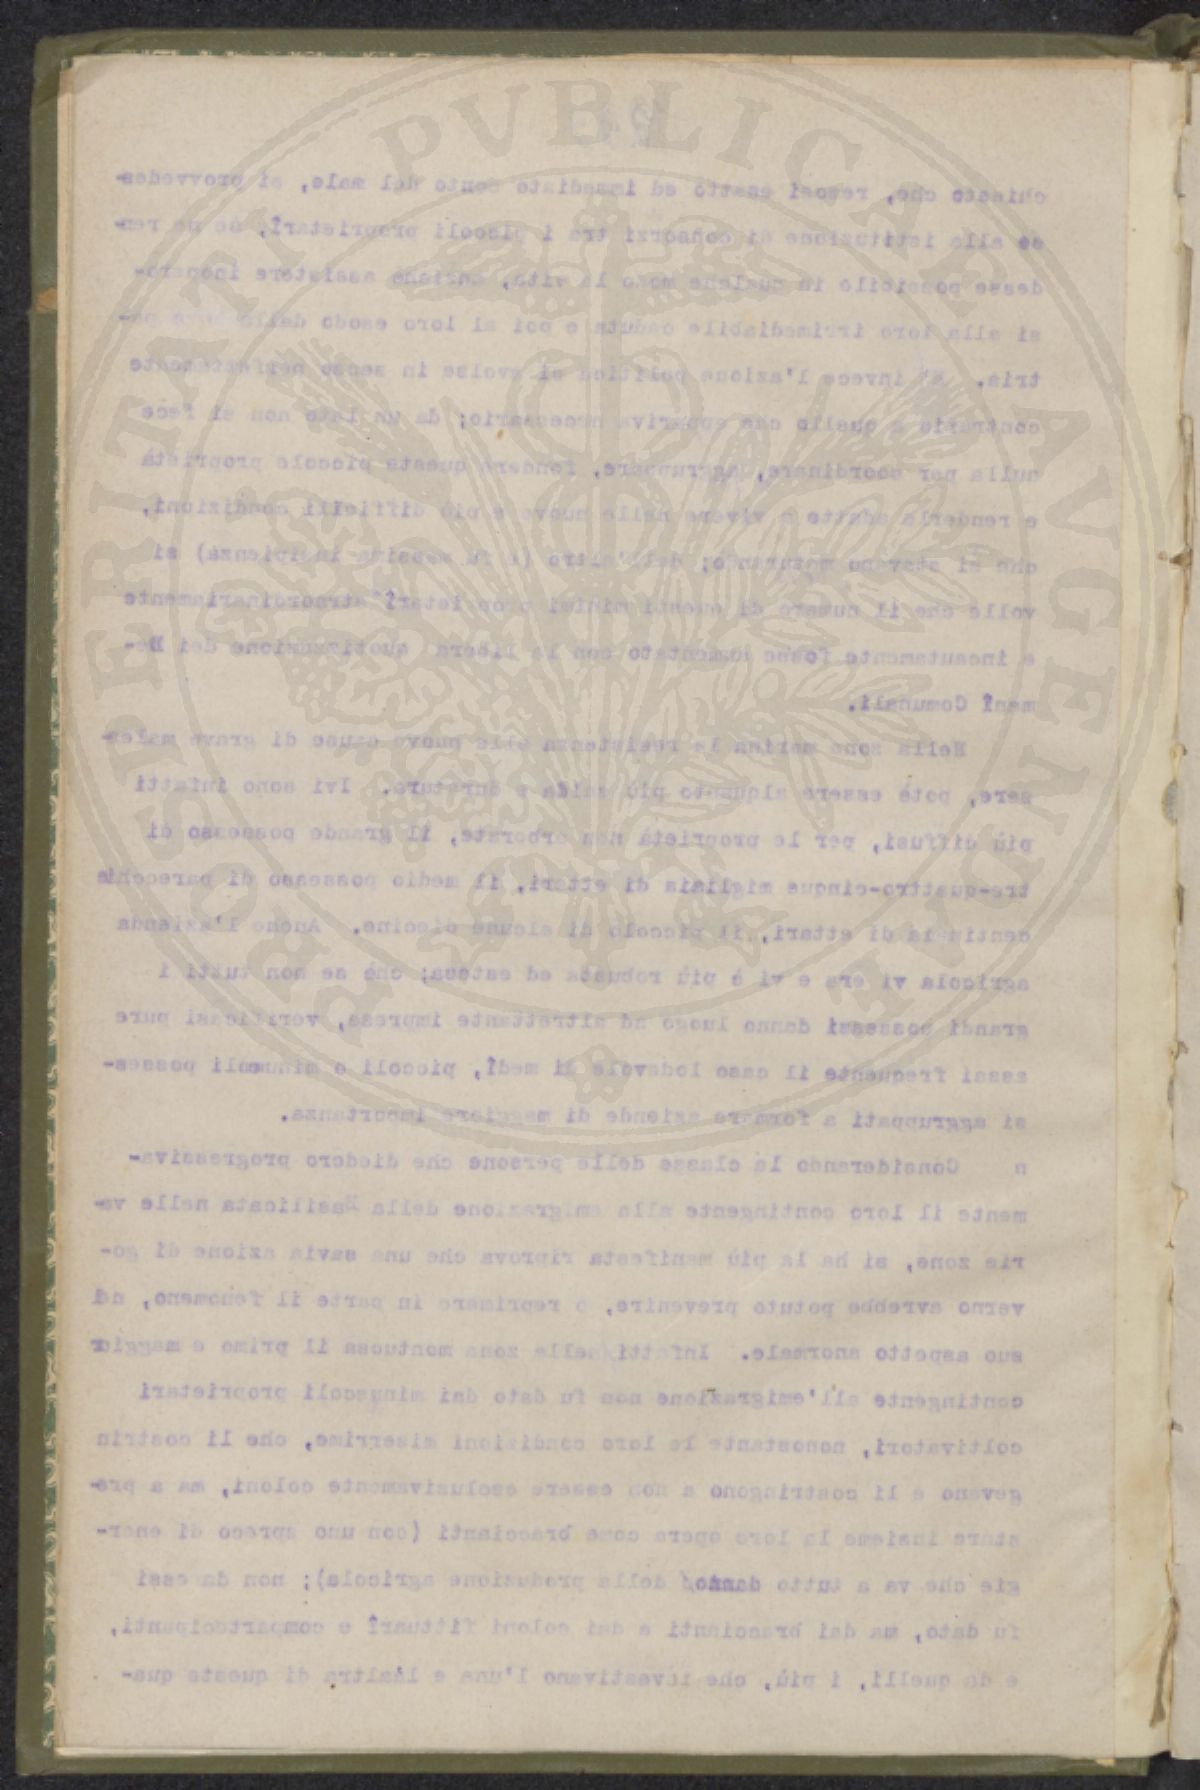 chiesto che, resosi esatto ed immediato conto del male, si provvedes-
se alla istituzione di consorzi tra i piccoli proprietarî, se ne ren-
desse possibile in qualche modo la vita, anziché assistere inopero-
si alla loro irrimediabile caduta e poi al loro esodo dalla pa-
tria. E invece l'azione politica si svolse in senso perfettamente
contrario a quello che appariva necessario; da un lato non si fece
nulla per coordinare, aggruppare, fondere queste piccole proprietà
e renderle adatte a vivere nelle nuove e più difficili condizioni,
che si stavano maturando; dall'altro (e fu massima insipienza) si
volle che il numero di questi minimi proprietarî straordinariamente
e incautamente fosse aumentato con la libera quotizzazione dei De-
manî Comunali.
Nella zona marina la resistenza alle nuove cause di grave males-
sere, potè essere alquanto più salda e duratura. Ivi sono infatti
più diffusi, per le proprietà non arborate, il grande possesso di
tre-quattro-cinque migliaia di ettari, il medio possesso di parecchie
centinaia di ettari, il piccolo di alcune diecine. Anche l'azienda
agricola vi era e vi è più robusta ed estesa; chè se non tutti i
grandi possessi danno luogo ad altrettante imprese, verificasi pure
assai frequente il caso lodevole di medî, piccoli e minuscoli posses-
si aggruppati a formare aziende di maggiore importanza.
n Considerando la classe delle persone che diedero progressiva-
mente il loro contingente alla emigrazione della Basilicata nelle va-
rie zone, si ha la più manifesta riprova che una savia azione di go-
verno avrebbe potuto prevenire, o reprimere in parte il fenomeno, nel
suo aspetto anormale. Infatti nella zona montuosa il primo e maggior
contingente all'emigrazione non fu dato dai minuscoli proprietari
coltivatori, nonostante le loro condizioni miserrime, che li costrin
gevano e li costringono a non essere esclusivamente coloni, ma a pre-
stare insieme la loro opera come braccianti (con uno spreco di ener-
gie che va a tutto danno della produzione agricola); non da essi
fu dato, ma dai braccianti e dai coloni fittuarî e compartecipanti,
e da quelli, i più, che investivano l'una e l'altra di queste qua-